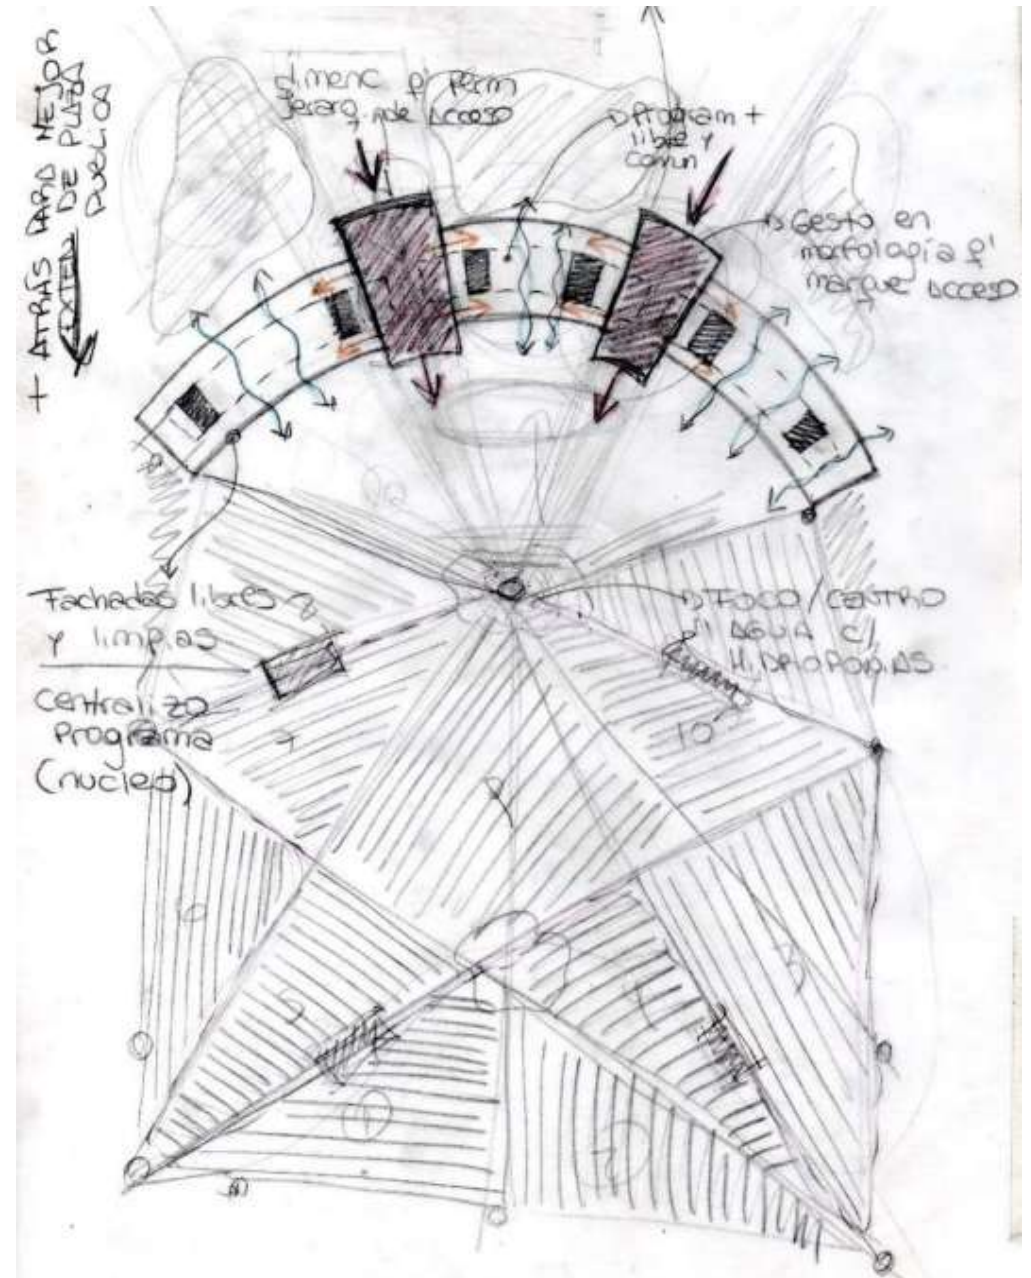 + ATRÁS PARA MEJOR
EXTEN DE PLAZA
PUBLICA
dimenc p' perm
jerarq. nde Acceso
Program +
libre y
comun
Gesto en
morfología p'
marque Acceso
Fachadas libres
y limpias
centralizo
Programa
(nucleo)
FOCO/CENTRO
AGUA c/
HIDROPONIAS
10